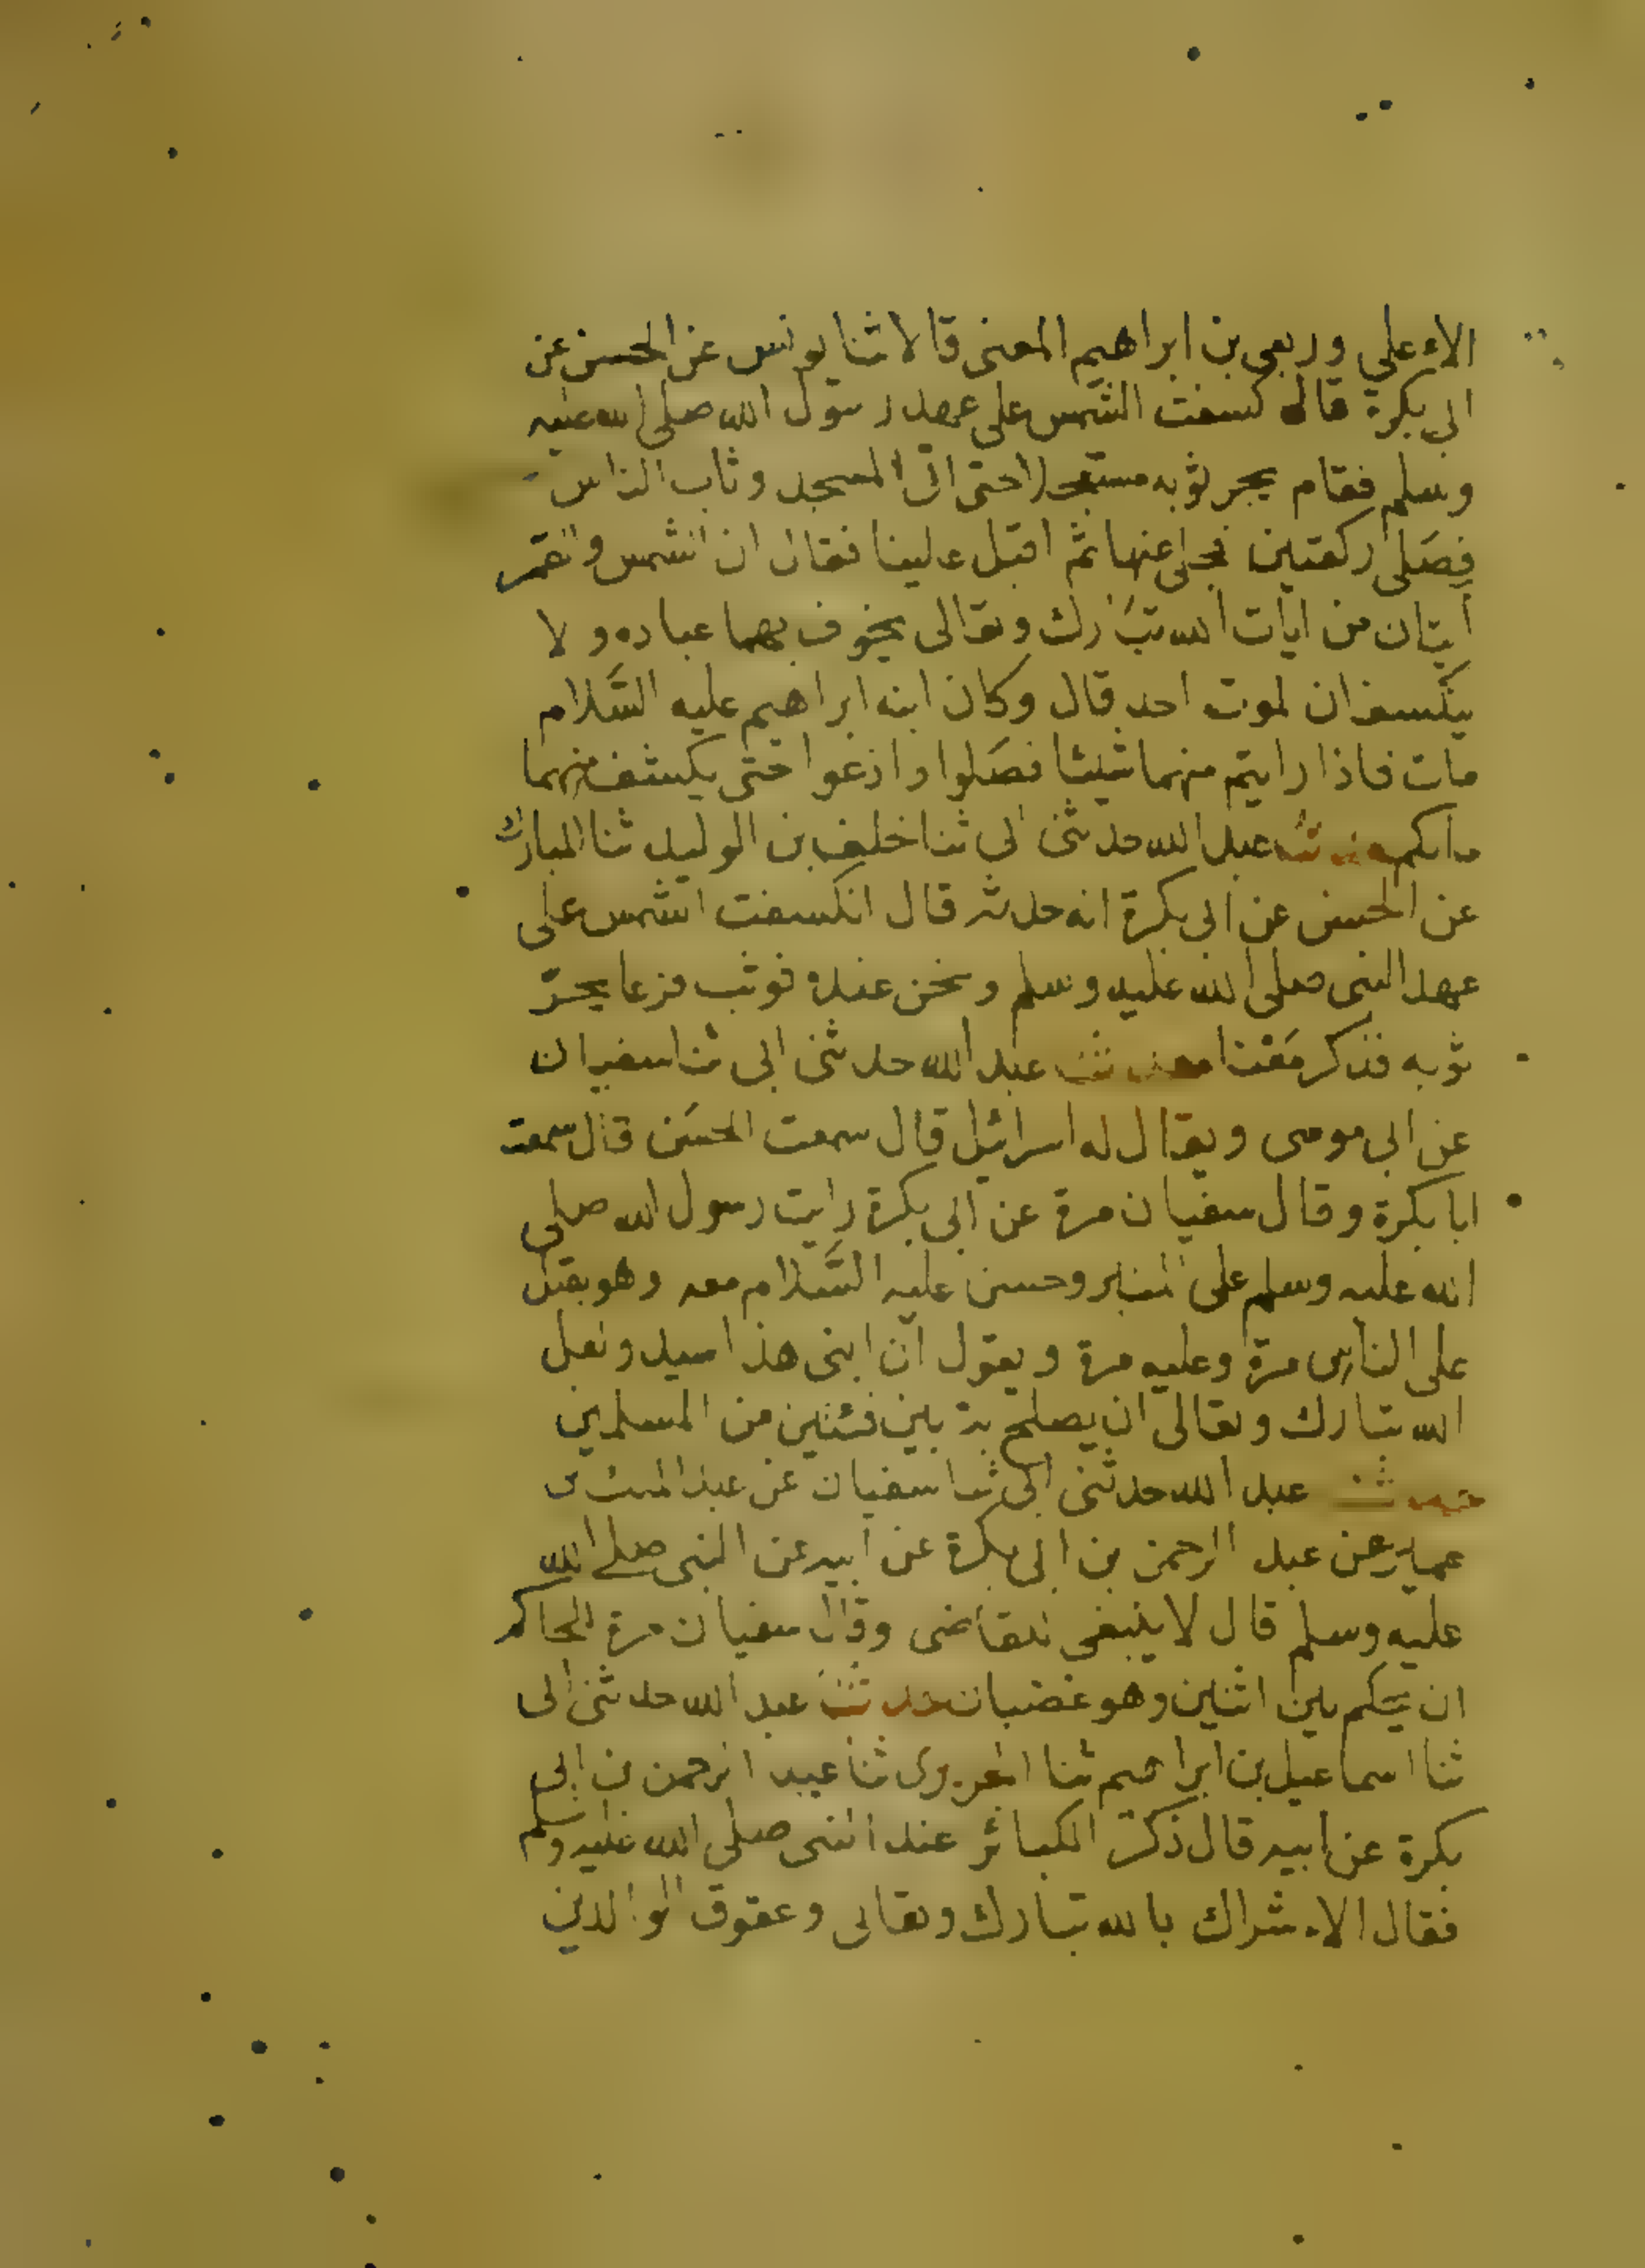 الاعلي وربعي بن ابراهيم المعنى قالا ثنا يونس عن الحسن عن
ابي بكرة قال كسفت الشمس على عهد رسول الله صلى الله عليه
وسلم فقام يجر ثوبه مستعجلا حتى اتى المسجد وثاب الناس
فصلى ركعتين فجلي عنها ثم اقبل علينا فقال ان الشمس والقمر
آيتان من ايات الله تبارك وتعالى يخوف بهما عباده ولا
ينكسفان لموت احد قال وكان ابنه ابراهيم عليه السلام
مات فاذا رايتم منهما شيئا فصلوا وادعوا حتى يكشف منهما
ما بكم حدثنا عبد الله حدثني ابي ثنا خلف بن الوليد ثنا المبارك
عن الحسن عن ابي بكرة انه حدثه قال انكسفت الشمس على
عهد النبي صلى الله عليه وسلم ونحن عنده فوثب فزعا يجر
ثوبه فذكر معنا حدثنا عبد الله حدثني ابي ثنا سفيان
عن ابي موسى ويقال له اسرائيل قال سمعت الحسن قال سمعت
ابا بكرة وقال سفيان مرة عن ابي بكرة رايت رسول الله صلى
الله عليه وسلم على المنبر وحسن عليه السلام معه وهو يقبل
على الناس مرة وعليه مرة ويقول ان ابني هذا سيد ولعل
الله تبارك وتعالى ان يصلح به بين فئتين من المسلمين
حدثنا عبد الله حدثني ابي ثنا سفيان عن عبد الملك بن
عمير عن عبد الرحمن بن ابي بكرة عن ابيه عن النبي صلى الله
عليه وسلم قال لا ينبغي للقاضي وقال سفيان مرة للحاكم
ان يحكم بين اثنين وهو غضبان حدثنا عبد الله حدثني ابي
ثنا اسماعيل بن ابراهيم ثنا الجريري ثنا عبد الرحمن بن ابي
بكرة عن ابيه قال ذكر الكبائر عند النبي صلى الله عليه وسلم
فقال الاشراك بالله تبارك وتعالى وعقوق الوالدين